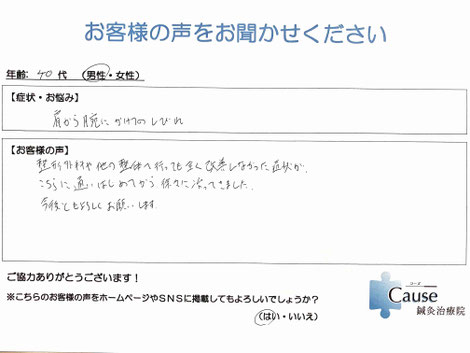 お客様の声をお聞かせください
年齢: 40 代 (男性・女性)
【症状・お悩み】
肩から腕にかけてのしびれ
【お客様の声】
整形外科や他の整体へ行っても全く改善しなかった症状が、
こちらに通いはじめてから徐々に治ってきました。
今後ともよろしくお願いします。
ご協力ありがとうございます!
※こちらのお客様の声をホームページやSNSに掲載してもよろしいでしょうか?
(はい・いいえ)
コーズ
Cause
鍼灸治療院